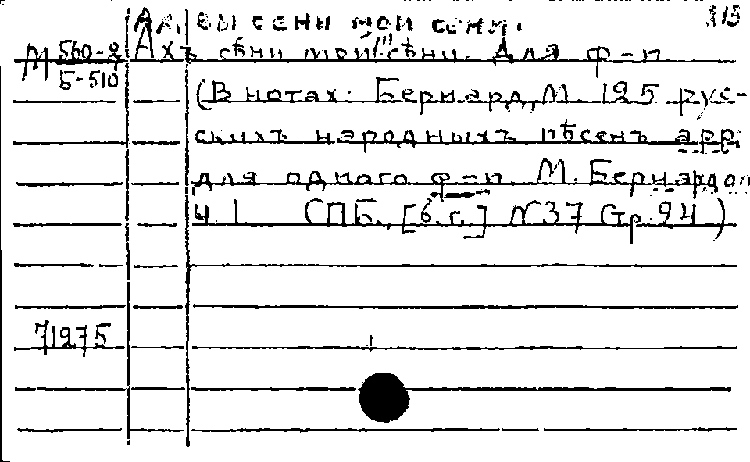 Ах, вы сени мои сени.
М 560-2 Ахъ сѣни мои сѣни. Для ф-п.
Б-510 (В нотах: Бернард, М. 125 рус-
скихъ народныхъ пѣсенъ арр.
для одного ф-п. М. Бернардом
Ч. 1 СПБ., [б. г.] N 37 Стр. 24)
71275